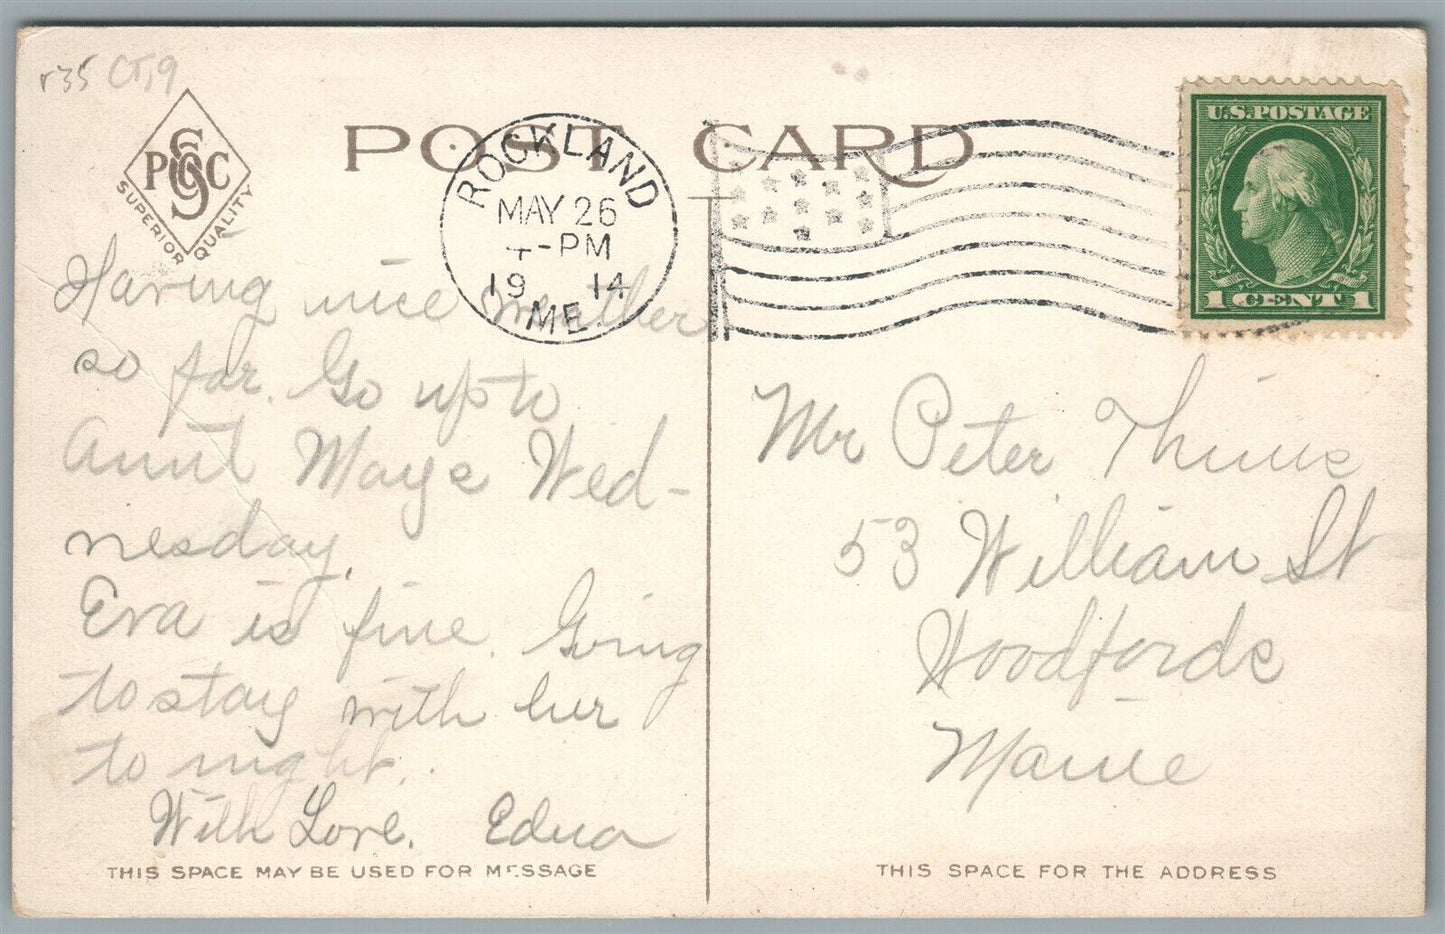 r35 CT,9
P S C
SUPERIOR QUALITY
POST CARD
ROCKLAND
MAY 26
4-PM
19 14
ME.
U.S. POSTAGE
1 CENT 1
Having nice weather
so far. Go up to
Aunt Mays Wed-
nesday.
Eva is fine. Going
to stay with her
to night.
With Love. Edna
Mr Peter
53 William St
Woodfords
Maine
THIS SPACE MAY BE USED FOR MESSAGE
THIS SPACE FOR THE ADDRESS